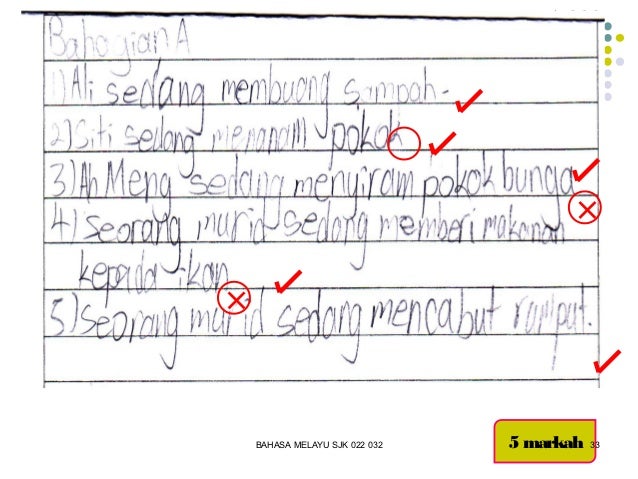 Bahagian A
1) Ali sedang membuang sampah.
2) Siti sedang menanam pokok
3) Ah Meng sedang menyiram pokok bunga
4) Seorang murid sedang memberi makanan
kepada ikan
5) Seorang murid sedang mencabut rumput.
BAHASA MELAYU SJK 022 032
5 markah 33